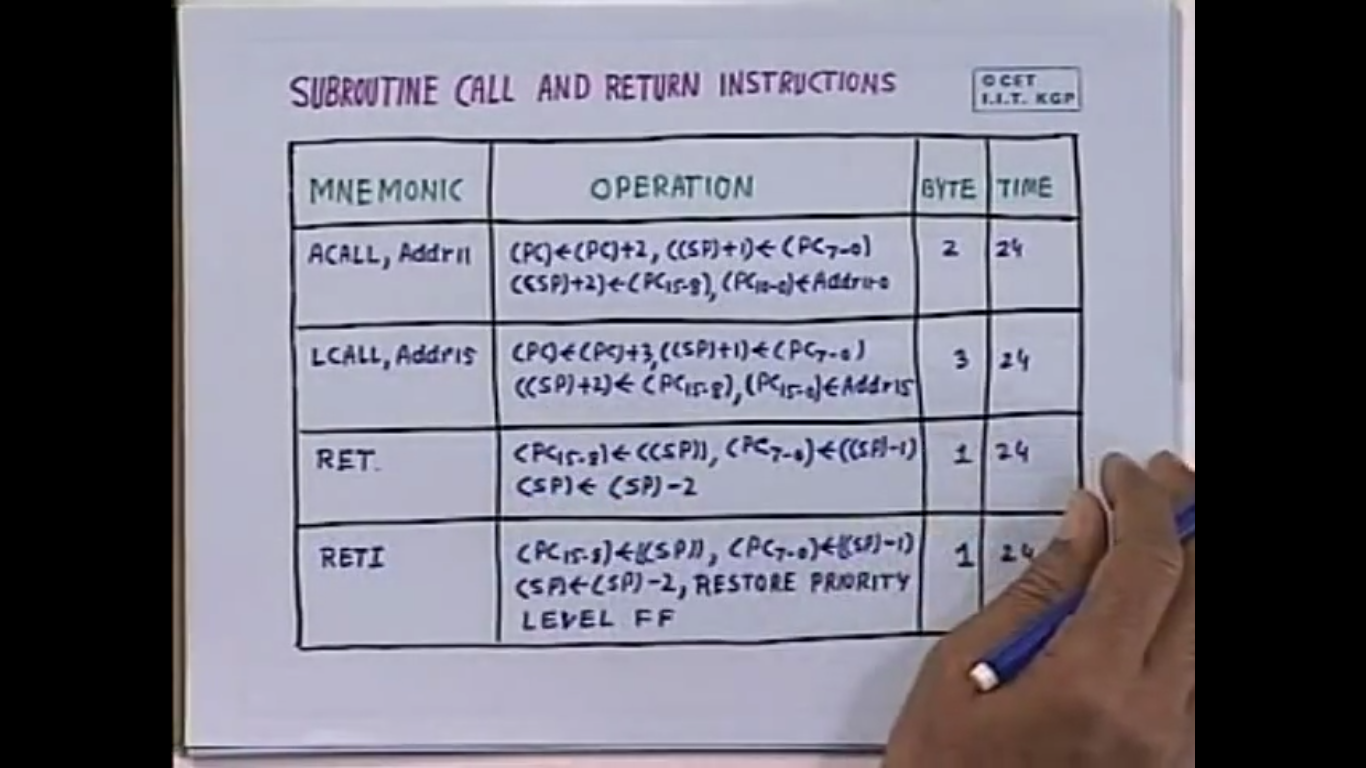 SUBROUTINE CALL AND RETURN INSTRUCTIONS
© CET
I.I.T. KGP
MNEMONIC OPERATION BYTE TIME
ACALL, Addr11 (PC)←(PC)+2, ((SP)+1)←(PC7-0) 2 24
((SP)+2)←(PC15-8), (PC10-0)←Addr11-0
LCALL, Addr15 (PC)←(PC)+3, ((SP)+1)←(PC7-0) 3 24
((SP)+2)←(PC15-8), (PC15-0)←Addr15
RET. (PC15-8)←((SP)), (PC7-0)←((SP)-1) 1 24
(SP)←(SP)-2
RETI (PC15-8)←((SP)), (PC7-0)←((SP)-1) 1 24
(SP)←(SP)-2, RESTORE PRIORITY
LEVEL FF